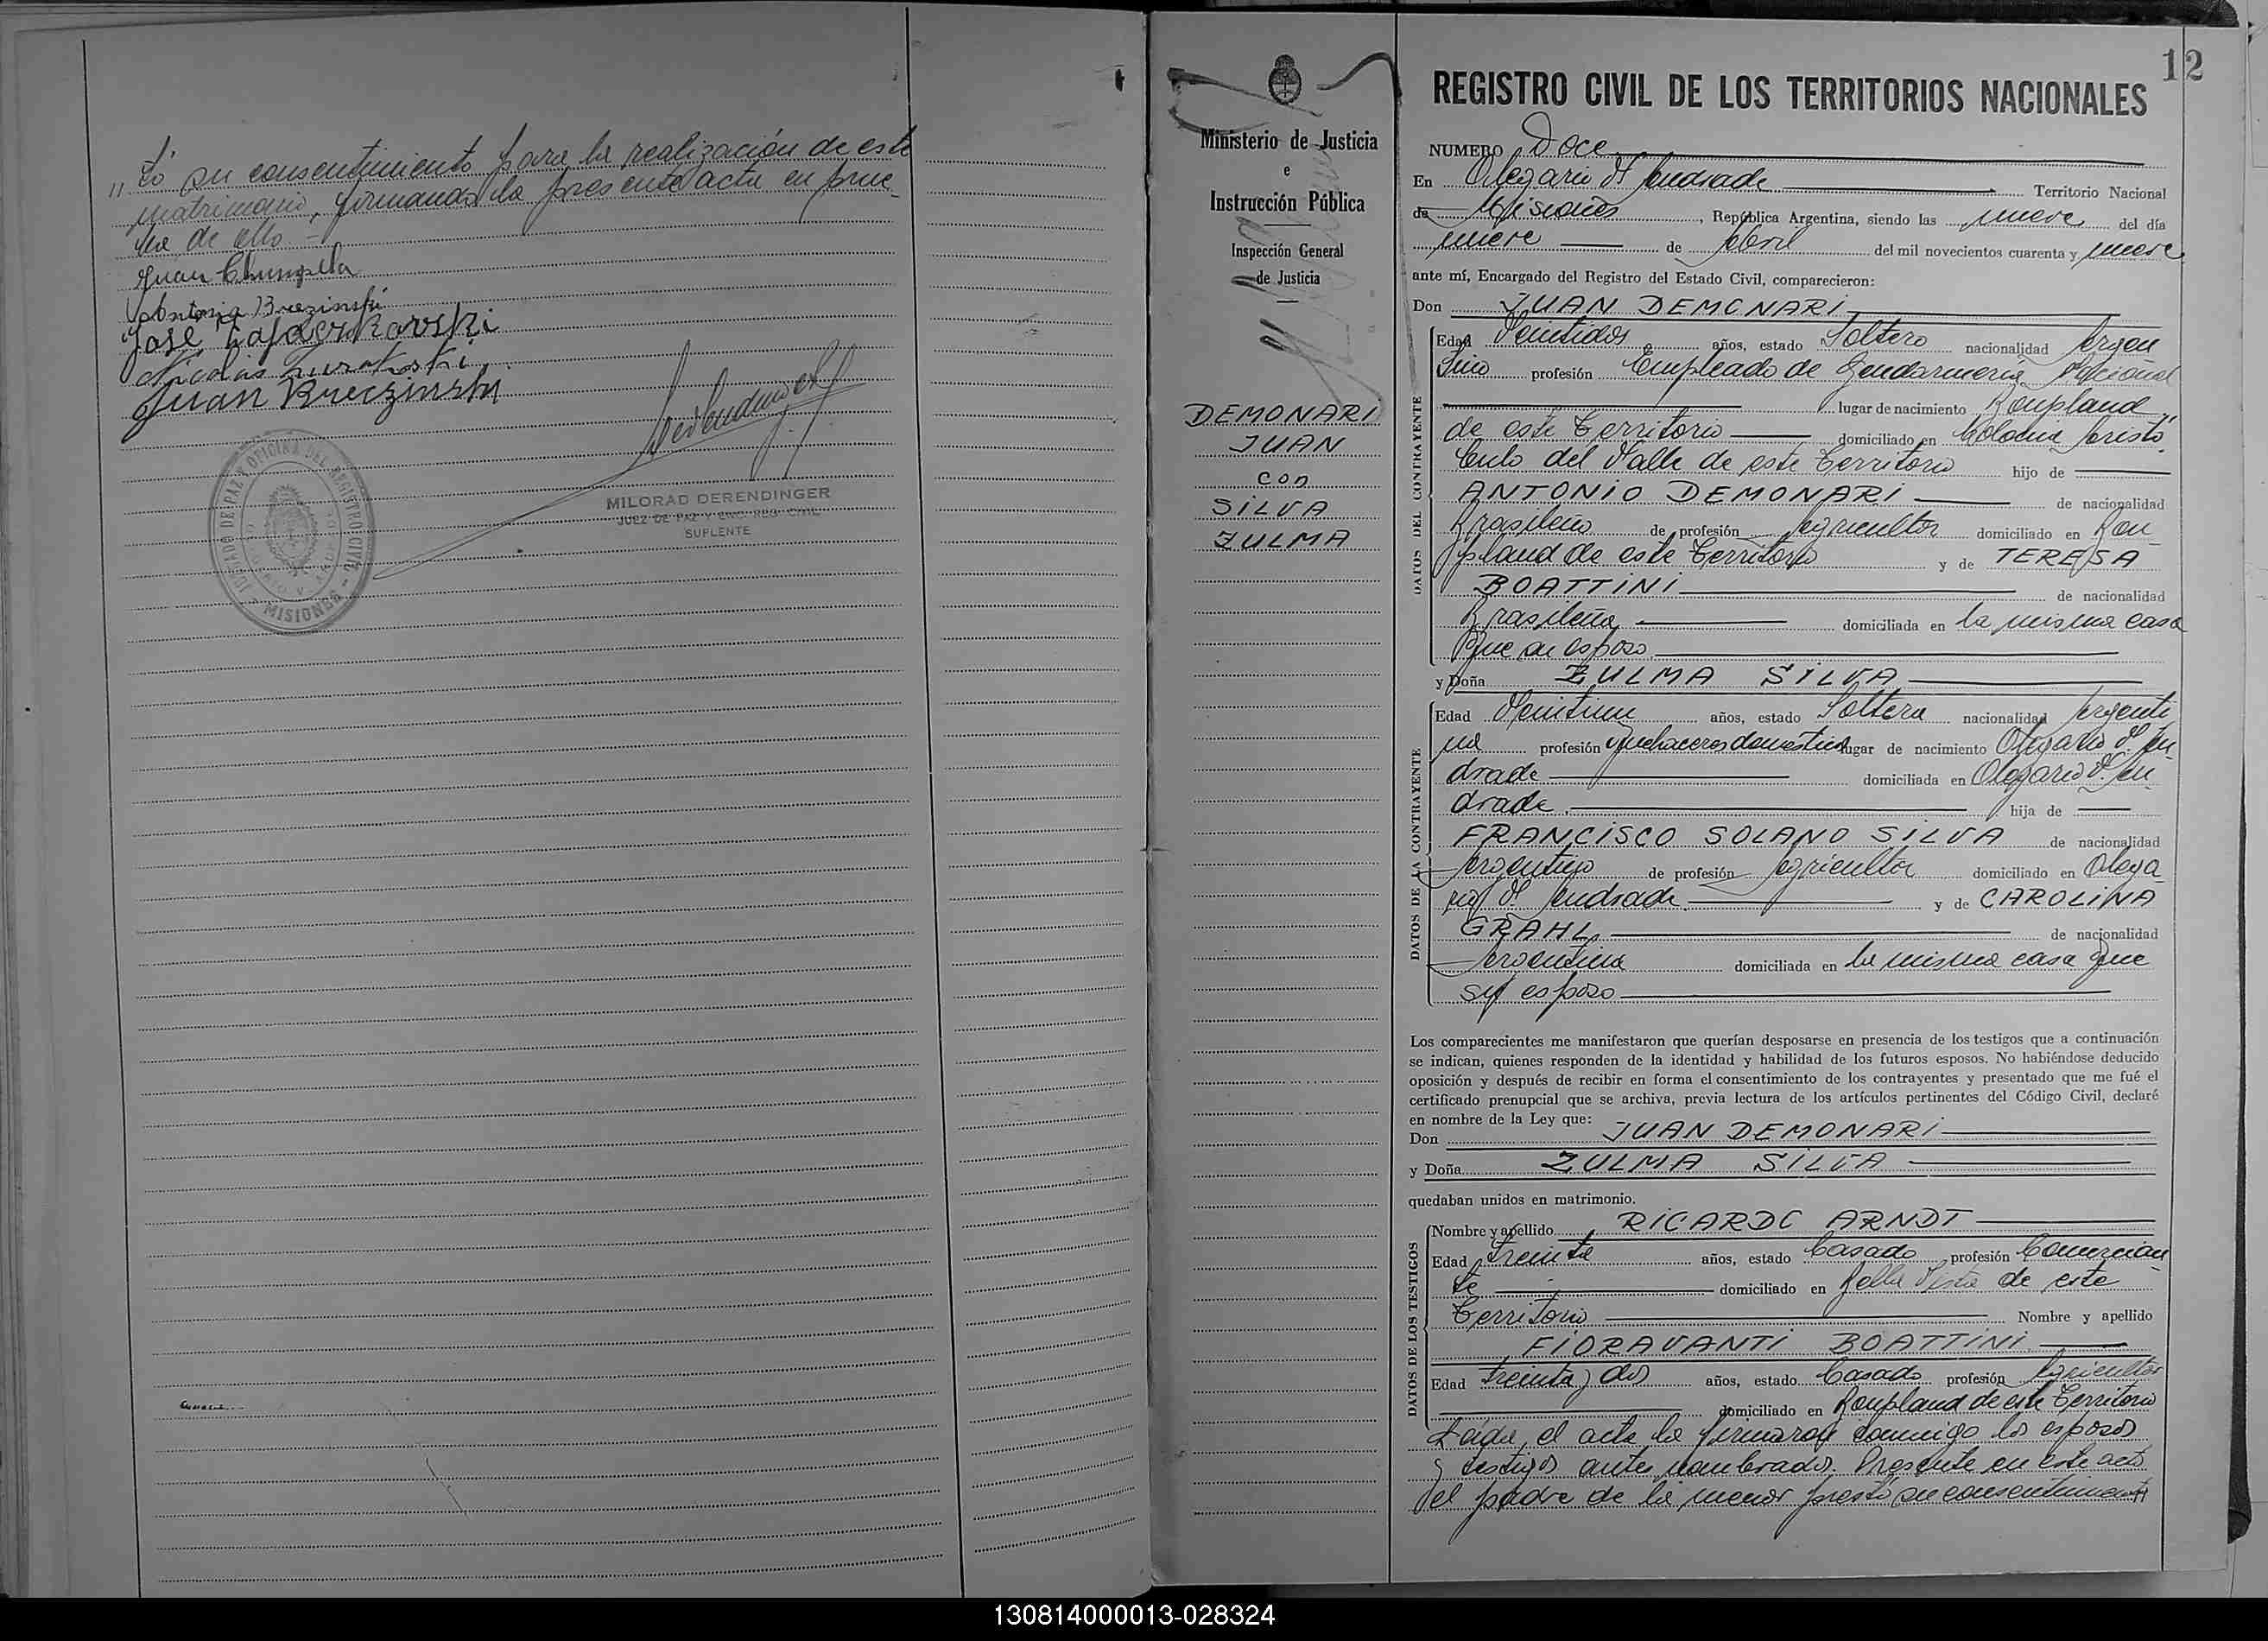 " tó su consentimiento para la realización de este
matrimonio, firmando la presente acta en prue-
ba de ello.-
Juan
Antonia Brezinski
José
Nicolas
Juan Brueczinski
JUZGADO DE PAZ Y OFICINA DEL REGISTRO CIVIL
MISIONES
MILORAD DERENDINGER
JUEZ DE PAZ Y ENC. REG. CIVIL
SUPLENTE
12
Ministerio de Justicia
e
Instrucción Pública
Inspección General
de Justicia
DEMONARI
JUAN
con
SILVA
ZULMA
REGISTRO CIVIL DE LOS TERRITORIOS NACIONALES
NUMERO Doce
En Olegario V. Andrade Territorio Nacional
de Misiones, República Argentina, siendo las nueve del día
nueve de Abril del mil novecientos cuarenta y nueve
ante mí, Encargado del Registro del Estado Civil, comparecieron:
Don JUAN DEMONARI
DATOS DEL CONTRAYENTE
Edad Veintidos años, estado Soltero nacionalidad Argen
tino profesión Empleado de Gendarmería Nacional
lugar de nacimiento Bonpland
de este Territorio domiciliado en Colonia Aristó
bulo del Valle de este Territorio hijo de
ANTONIO DEMONARI de nacionalidad
Brasileño de profesión Agricultor domiciliado en Bon
pland de este Territorio y de TERESA
BOATTINI de nacionalidad
Brasileña domiciliada en la misma casa
que su esposo.
y Doña ZULMA SILVA
DATOS DE LA CONTRAYENTE
Edad Veintiun años, estado Soltera nacionalidad Argenti
na profesión Quehaceres domésticos lugar de nacimiento Olegario V. An-
drade domiciliada en Olegario V. An
drade. hija de
FRANCISCO SOLANO SILVA de nacionalidad
Argentino de profesión Agricultor domiciliado en Olega
rio V. Andrade y de CAROLINA
GRAHL de nacionalidad
Argentina domiciliada en la misma casa que
su esposo
Los comparecientes me manifestaron que querían desposarse en presencia de los testigos que a continuación
se indican, quienes responden de la identidad y habilidad de los futuros esposos. No habiéndose deducido
oposición y después de recibir en forma el consentimiento de los contrayentes y presentado que me fué el
certificado prenupcial que se archiva, previa lectura de los artículos pertinentes del Código Civil, declaré
en nombre de la Ley que:
Don JUAN DEMONARI
y Doña ZULMA SILVA
quedaban unidos en matrimonio.
DATOS DE LOS TESTIGOS
Nombre y apellido RICARDO ARNDT
Edad treinta años, estado Casado profesión Comercian
te domiciliado en Bella Vista de este
Territorio Nombre y apellido
FIORAVANTI BOATTINI
Edad treinta y dos años, estado Casado profesión Agricultor
domiciliado en Bonpland de este Territorio
Leída el acta la firmaron conmigo los esposos
y testigos antes nombrados. Presente en este acto
el padre de la menor prestó su consentimiento
130814000013-028324